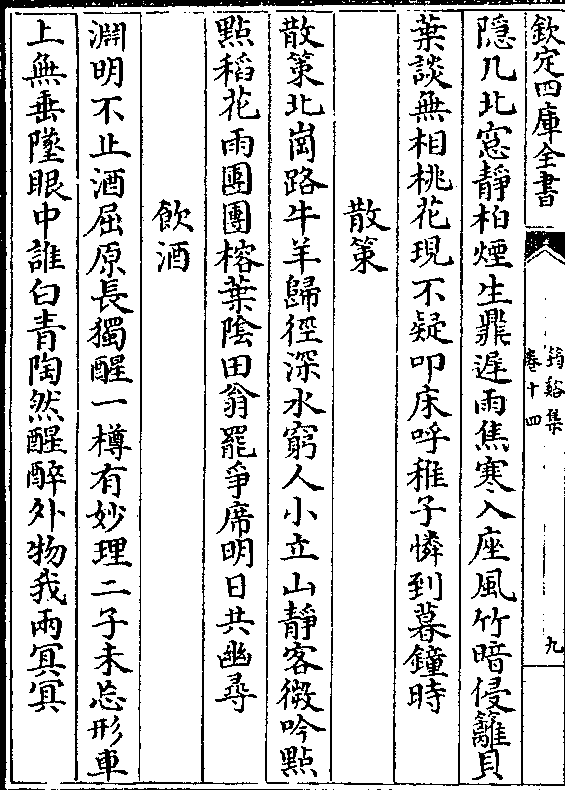 欽定四庫全書
筠谿集
卷十四
九
隱几北窓靜柏煙生鼎遲雨焦寒入座風竹暗侵籬貝
葉談無相桃花現不疑叩床呼稚子憐到暮鐘時
散策
散策北崗路牛羊歸徑深水窮人小立山靜客微吟點
點稻花雨團團榕葉陰田翁罷爭席明日共幽尋
飲酒
淵明不止酒屈原長獨醒一樽有妙理二子未忘形車
上無乗墜眼中誰白青陶然醒醉外物我兩冥冥